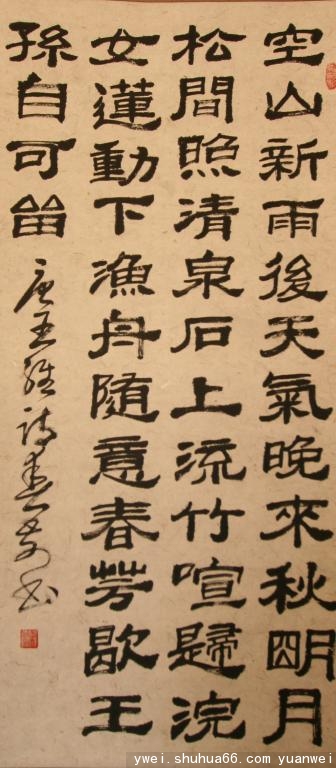 空山新雨後天氣晚來秋明月
松間照清泉石上流竹喧歸浣
女蓮動下漁舟隨意春芳歇王
孫自可留
唐王維詩
ywei.shuhua66.com yuanwei